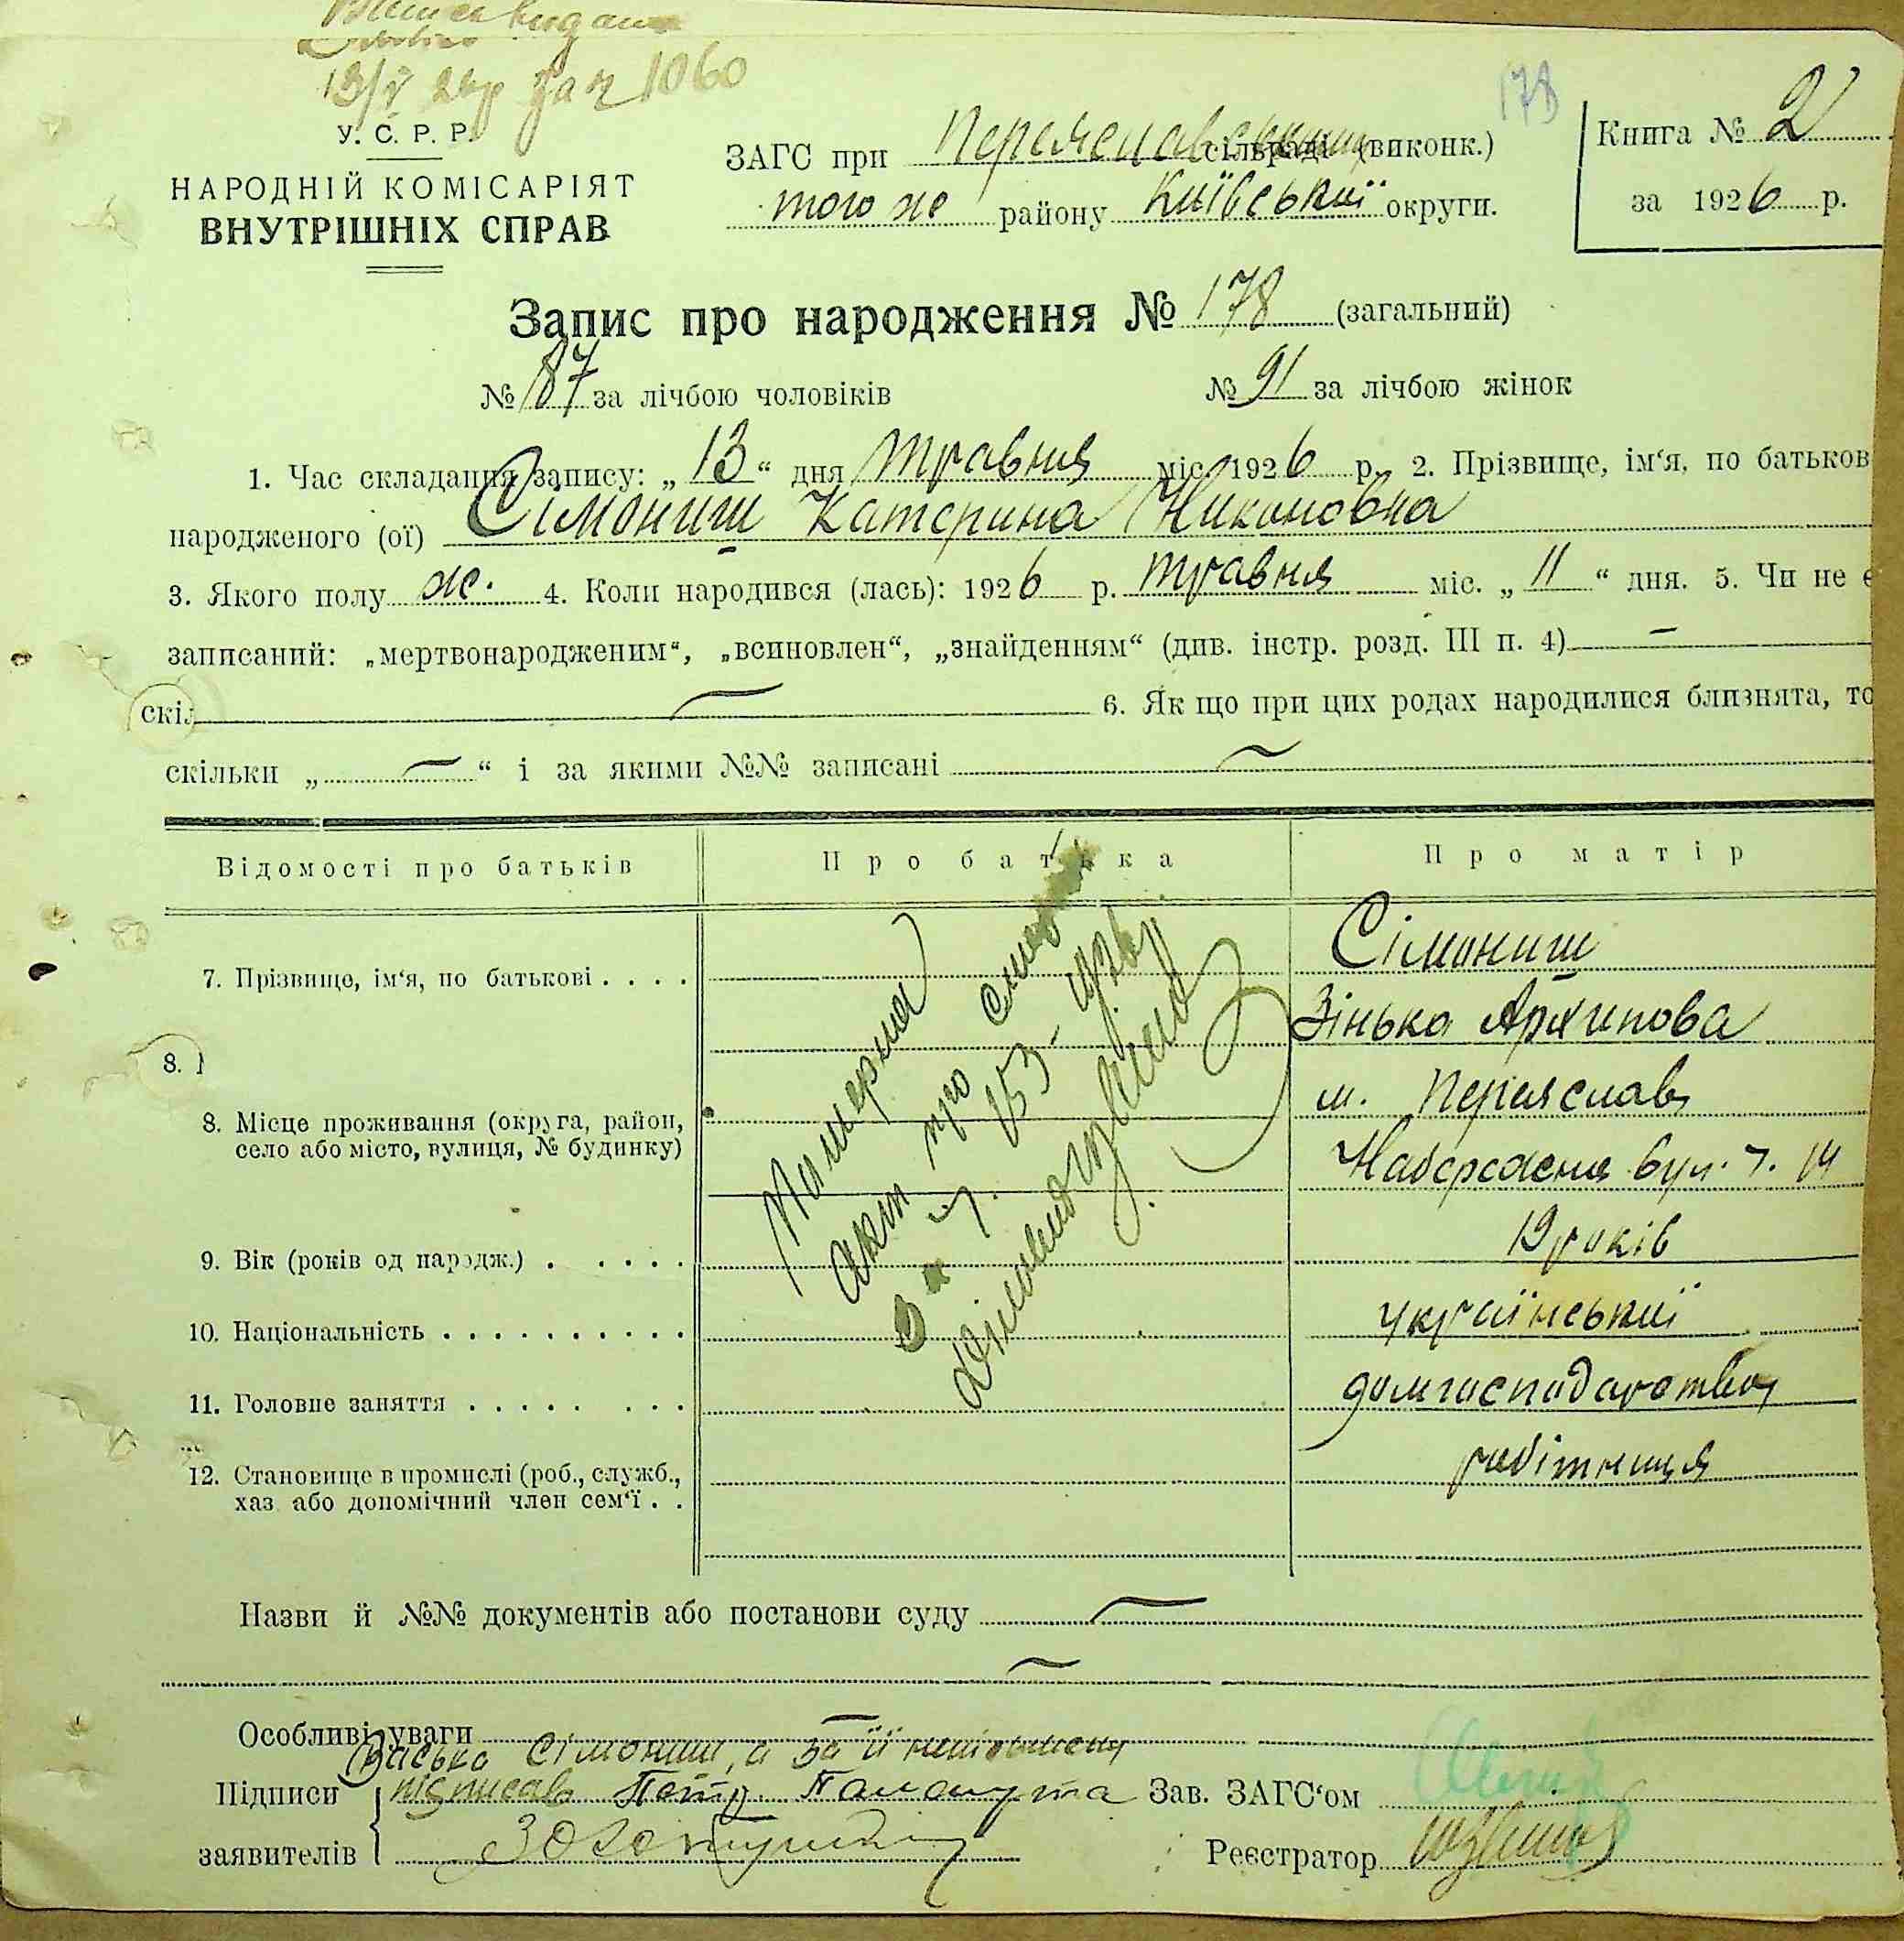 13/V 26 р
1060
178
У. С. Р. Р.
НАРОДНІЙ КОМІСАРІЯТ
ВНУТРІШНІХ СПРАВ
ЗАГС при Переяславському сільраді (виконк.)
того же району Київської округи.
Книга № 2
за 1926 р.
Запис про народження № 178 (загальний)
№ 87 за лічбою чоловіків № 91 за лічбою жінок
1. Час складання запису: „13“ дня травня міс. 1926 р. 2. Прізвище, ім‘я, по батьков
народженого (ої) Сімониш Катерина Никоновна
3. Якого полу ж. 4. Коли народився (лась): 1926 р. травня міс. „11“ дня. 5. Чи не є
записаний: „мертвонародженим“, „всиновлен“, „знайденням“ (див. інстр. розд. III п. 4) —
скіл — 6. Як що при цих родах народилися близнята, то
скільки „—“ і за якими №№ записані —
Відомості про батьків Про батька Про матір
7. Прізвище, ім‘я, по батькові . . . . Сімониш
Зінька Архипова
8.
8. Місце проживання (округа, район,
село або місто, вулиця, № будинку)
м. Переяслав
Набережна вул. ч. 14
9. Вік (років од народж.) . . . . . 19 років
10. Національність . . . . . . . . . . української
11. Головне заняття . . . . . . . . домгосподарство
12. Становище в промислі (роб., служб.,
хаз. або допомічний член сем‘ї . .
робітниця
Памерла
акт про смерть
ч. 153 — 1926 р.
Назви й №№ документів або постанови суду —
—
Особливі уваги —
Васька Сімониш, а за її неписьмену
Підписи підписав Петр Зав. ЗАГС‘ом
заявителів Реєстратор